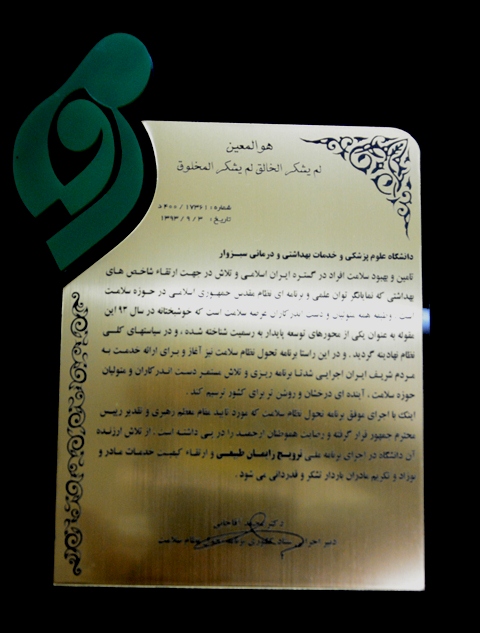 هوالمعین
لم یشکر الخالق لم یشکر المخلوق
شماره : ۱۷۳۶۱ / ۴۰۰ د
تاریخ : ۳ / ۹ / ۱۳۹۳
دانشگاه علوم پزشکی و خدمات بهداشتی و درمانی سبزوار
تامین و بهبود سلامت افراد در گستره ایران اسلامی و تلاش در جهت ارتقاء شاخص های
بهداشتی که نمایانگر توان علمی و برنامه ای نظام مقدس جمهوری اسلامی در حوزه سلامت
است ، وظیفه همه و دست اندرکاران عرصه سلامت است که خوشبختانه در سال ۹۳ این
مقوله به عنوان یکی از محورهای توسعه پایدار به رسمیت شناخته شده ، و در سیاستهای کلی
نظام نهادینه گردید . و در این راستا برنامه تحول نظام سلامت نیز آغاز و برای ارائه خدمت به
مردم شریف ایران اجرایی شد تا برنامه ریزی و تلاش مستمر دست اندرکاران و متولیان
حوزه سلامت ، آینده ای درخشان و روشن تر برای کشور ترسیم کند .
اینک با اجرای موفق برنامه تحول نظام سلامت که مورد تایید مقام معظم رهبری و تقدیر رییس
محترم جمهور قرار گرفته و رضایت هموطنان ارجمند را در پی داشته است . از تلاش ارزنده
آن دانشگاه در اجرای برنامه ملی ترویج زایمان طبیعی و ارتقاء کیفیت خدمات مادر و
نوزاد و تکریم مادران باردار تشکر و قدردانی می شود .
دکتر محمد آقاجانی
دبیر ستاد کشوری برنامه تحول نظام سلامت